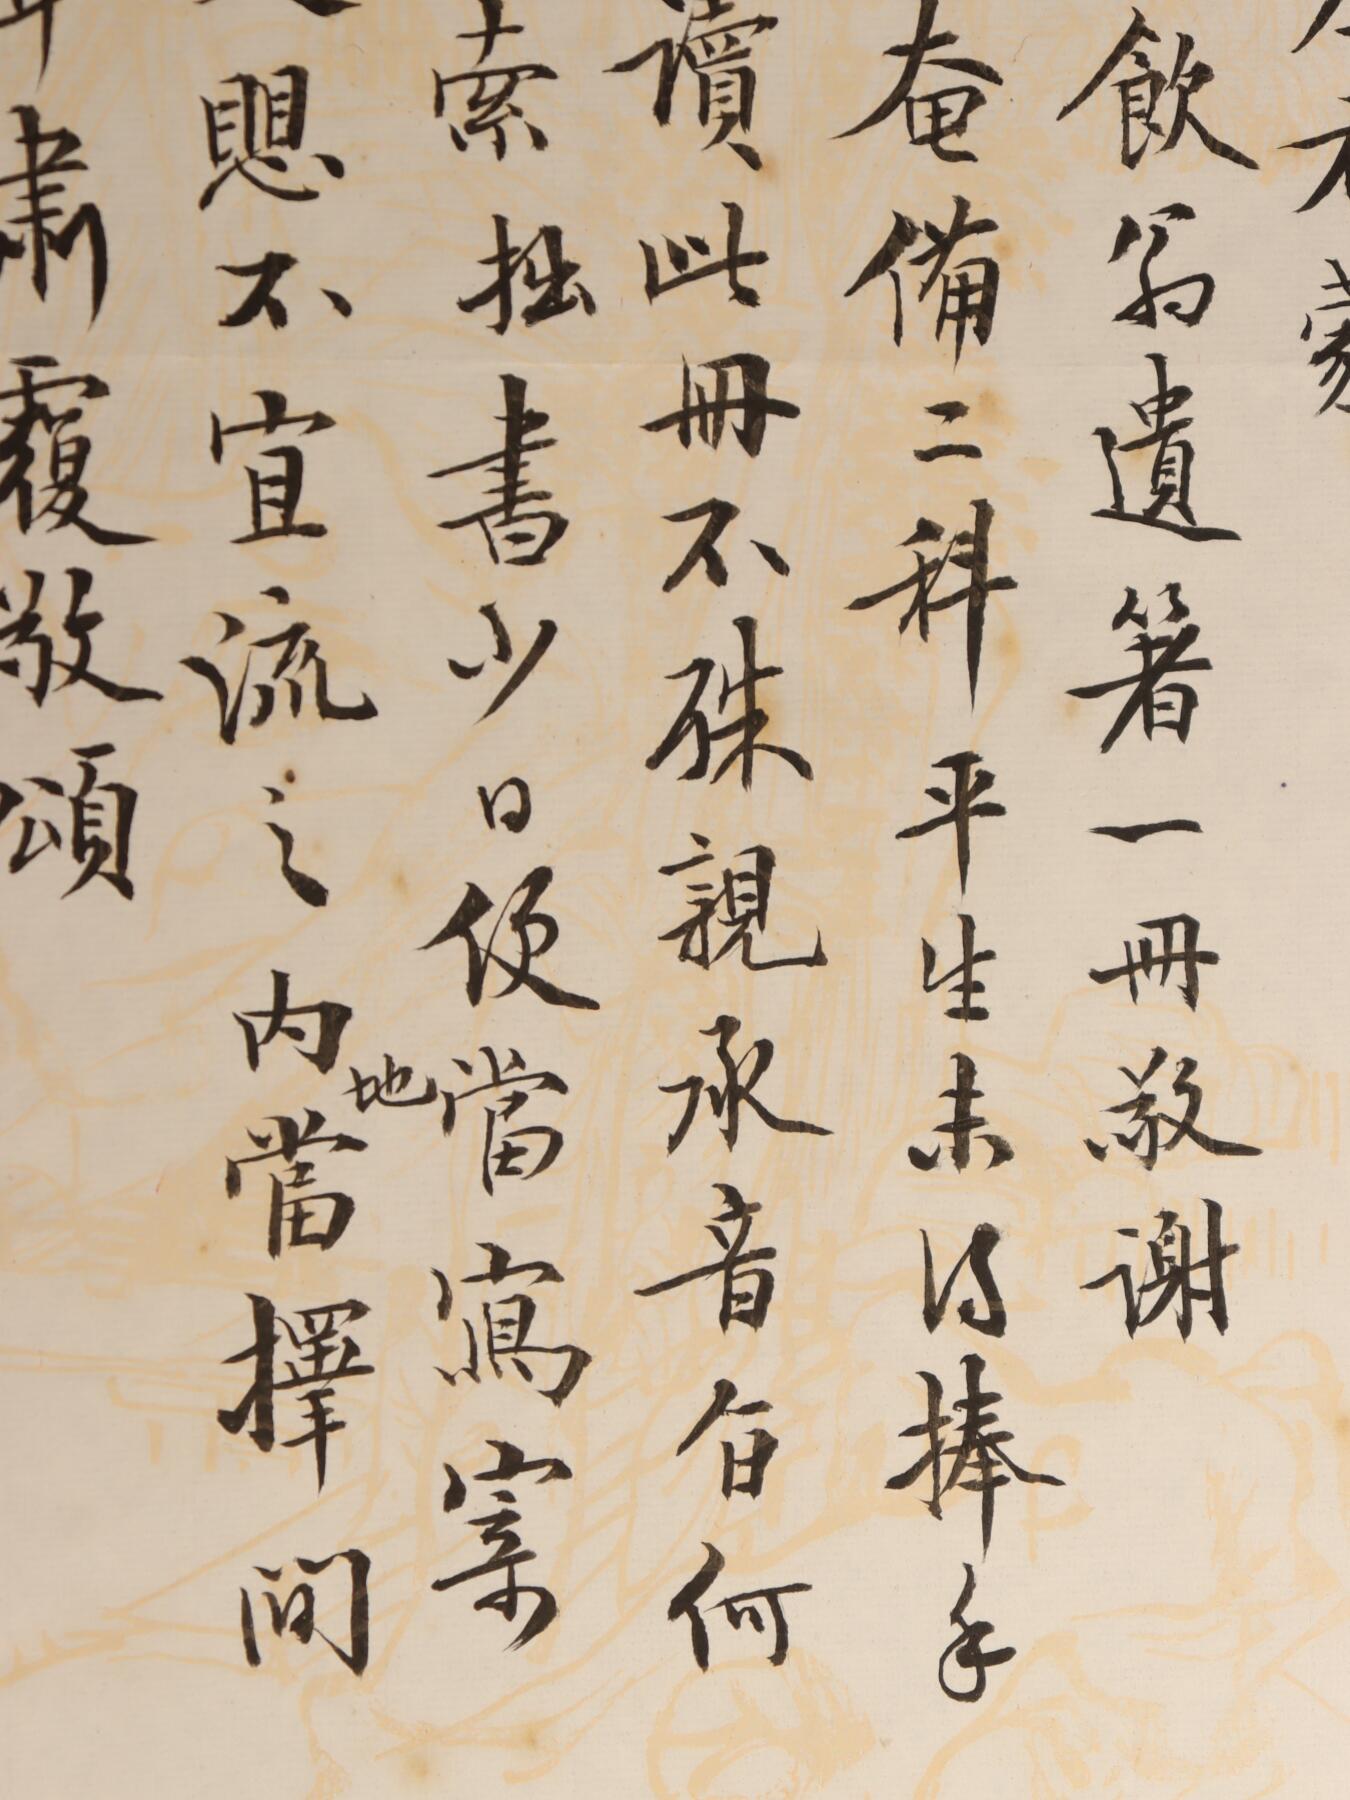 蒙
飲翁遺箸一冊敬謝
奄備二科平生未得捧手
讀此冊不殊親承音旨何
索拙書少日便當寫寄
愳不宜流之内地當擇間
肅覆敬頌